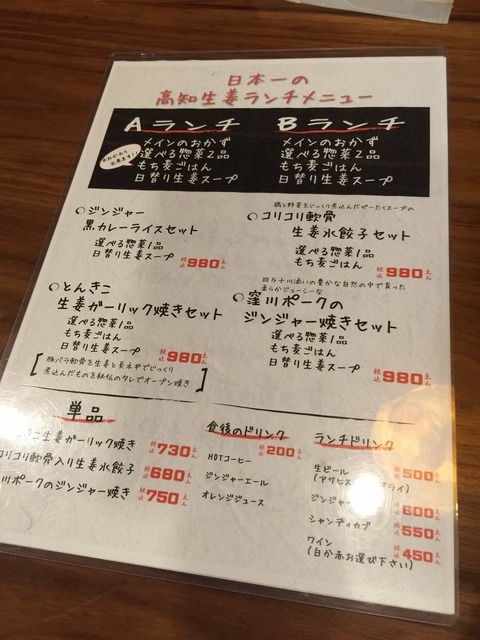 日本一の
高知生姜ランチメニュー
Aランチ
メインのおかず
選べる惣菜2品
もち麦ごはん
日替り生姜スープ
おかわり
出来ます!!
Bランチ
メインのおかず
選べる惣菜2品
もち麦ごはん
日替り生姜スープ
○ジンジャー
黒カレーライスセット
選べる惣菜1品
日替り生姜スープ
税込980えん
鶏と野菜をじっくり煮込んだぜーたくスープの
○コリコリ軟骨
生姜水餃子セット
選べる惣菜1品
もち麦ごはん
税込980えん
○とんきこ
生姜ガーリック焼きセット
選べる惣菜1品
もち麦ごはん
日替り生姜スープ
税込980えん
[豚バラ軟骨を生姜と長ネギでじっくり
煮込んだものを秘伝のタレでオーブン焼き]
四万十川沿いの豊かな自然の中で育った
柔らかジューシーな
○窪川ポークの
ジンジャー焼きセット
選べる惣菜1品
もち麦ごはん
日替り生姜スープ
税込980えん
単品
生姜ガーリック焼き 税込730えん
コリコリ軟骨入り生姜水餃子 税込680えん
川ポークのジンジャー焼き 税込750えん
食後のドリンク
税込200えん
HOTコーヒー
ジンジャーエール
オレンジジュース
ランチドリンク
生ビール 税込500えん
(アサヒス ライ)
ジンジャー 税込600えん
シャンディガフ 税込550えん
ワイン 税込450えん
(白か赤お選び下さい)